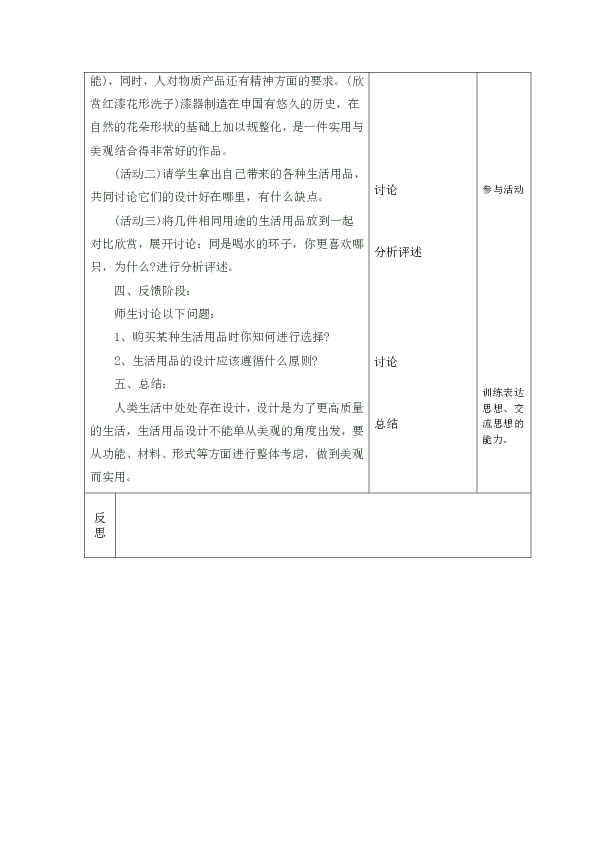 能)，同时，人对物质产品还有精神方面的要求。(欣
赏红漆花形洗子)漆器制造在申国有悠久的历史，在
自然的花朵形状的基础上加以规整化，是一件实用与
美观结合得非常好的作品。
(活动二)请学生拿出自己带来的各种生活用品，
共同讨论它们的设计好在哪里，有什么缺点。
(活动三)将几件相同用途的生活用品放到一起
对比欣赏，展开讨论：同是喝水的环子，你更喜欢哪
只，为什么?进行分析评述。
四、反馈阶段：
师生讨论以下问题：
1、购买某种生活用品时你知何进行选择?
2、生活用品的设计应该遵循什么原则?
五、总结：
人类生活中处处存在设计，设计是为了更高质量
的生活，生活用品设计不能单从美观的角度出发，要
从功能、材料、形式等方面进行整体考虑，做到美观
而实用。
讨论
分析评述
讨论
总结
参与活动
训练表达
思想、交
流思想的
能力。
反
思